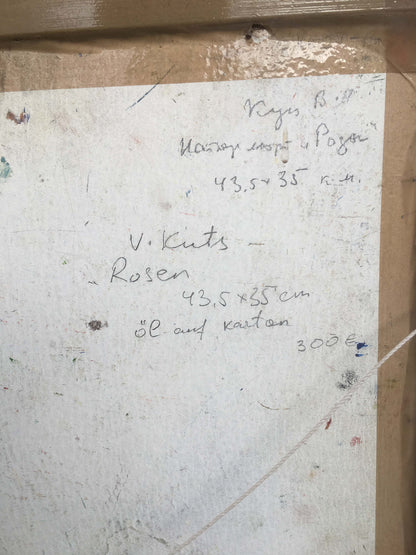 Куц В.
Натюрморт „Розы“
43,5 × 35 к.м.
V. Kuts –
Rosen
43,5 × 35 cm
öl auf karton
300 €